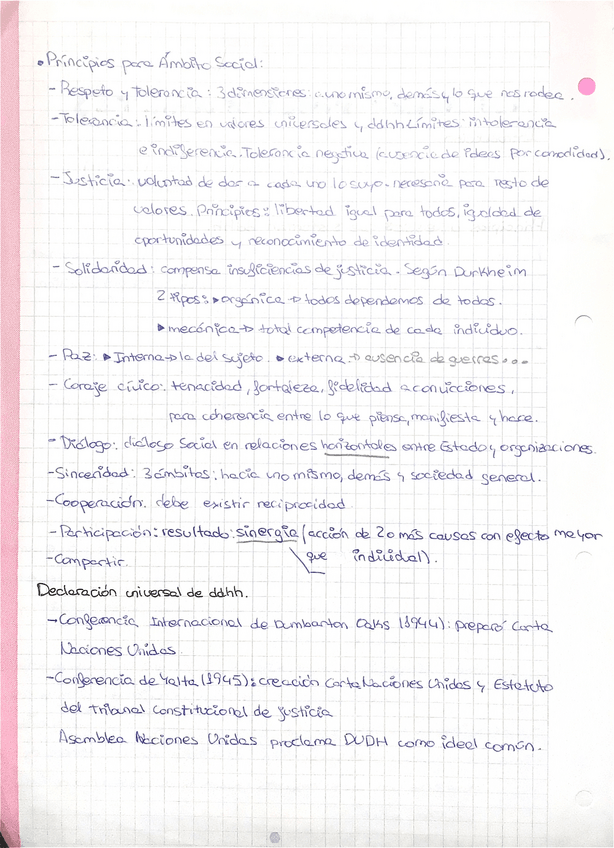 • Principios para Ámbito Social:
- Respeto y tolerancia: 3 dimensiones: a uno mismo, demás y lo que nos rodea.
- Tolerancia: límites en valores universales y ddhh. Límites: intolerancia
e indiferencia. Tolerancia negativa (ausencia de ideas por comodidad).
- Justicia: voluntad de dar a cada uno lo suyo. necesaria para resto de
valores. Principios: libertad igual para todos, igualdad de
oportunidades y reconocimiento de identidad.
- Solidaridad: compensa insuficiencias de justicia. Según Durkheim
2 tipos: ▸ orgánica → todos dependemos de todos.
▸ mecánica → total competencia de cada individuo.
- Paz: ▸ Interna → la del sujeto. ▸ externa → ausencia de guerras...
- Coraje cívico: tenacidad, fortaleza, fidelidad a convicciones,
para coherencia entre lo que piensa, manifiesta y hace.
- Diálogo: diálogo social en relaciones horizontales entre Estado y organizaciones.
- Sinceridad: 3 ámbitos: hacia uno mismo, demás y sociedad general.
- Cooperación: debe existir reciprocidad.
- Participación: resultado: sinergia (acción de 2 o más causas con efecto mayor
que individual).
- Compartir.
Declaración universal de ddhh.
- Conferencia Internacional de Dumbarton Oaks (1944): preparó Carta
Naciones Unidas.
- Conferencia de Yalta (1945): creación Carta Naciones Unidas y Estatuto
del Tribunal Constitucional de justicia
Asamblea Naciones Unidas proclama DUDH como ideal común.